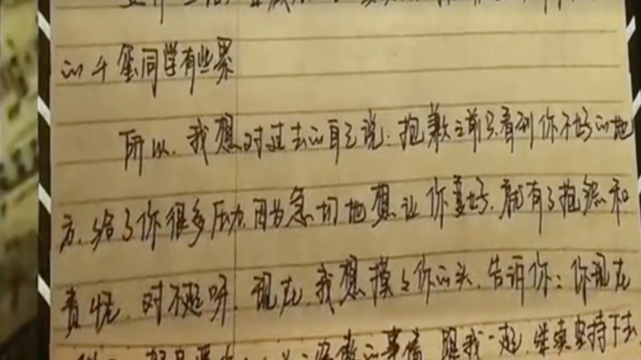 的千玺同学有些累
所以,我想对过去的自己说:抱歉之前只看到你不好的地
方,给了你很多压力,因为急切地想让你变好,就有了抱怨和
责怪,对不起呀。现在,我想摸摸你的头,告诉你:你现在
的事情,跟我一起,继续坚持下去